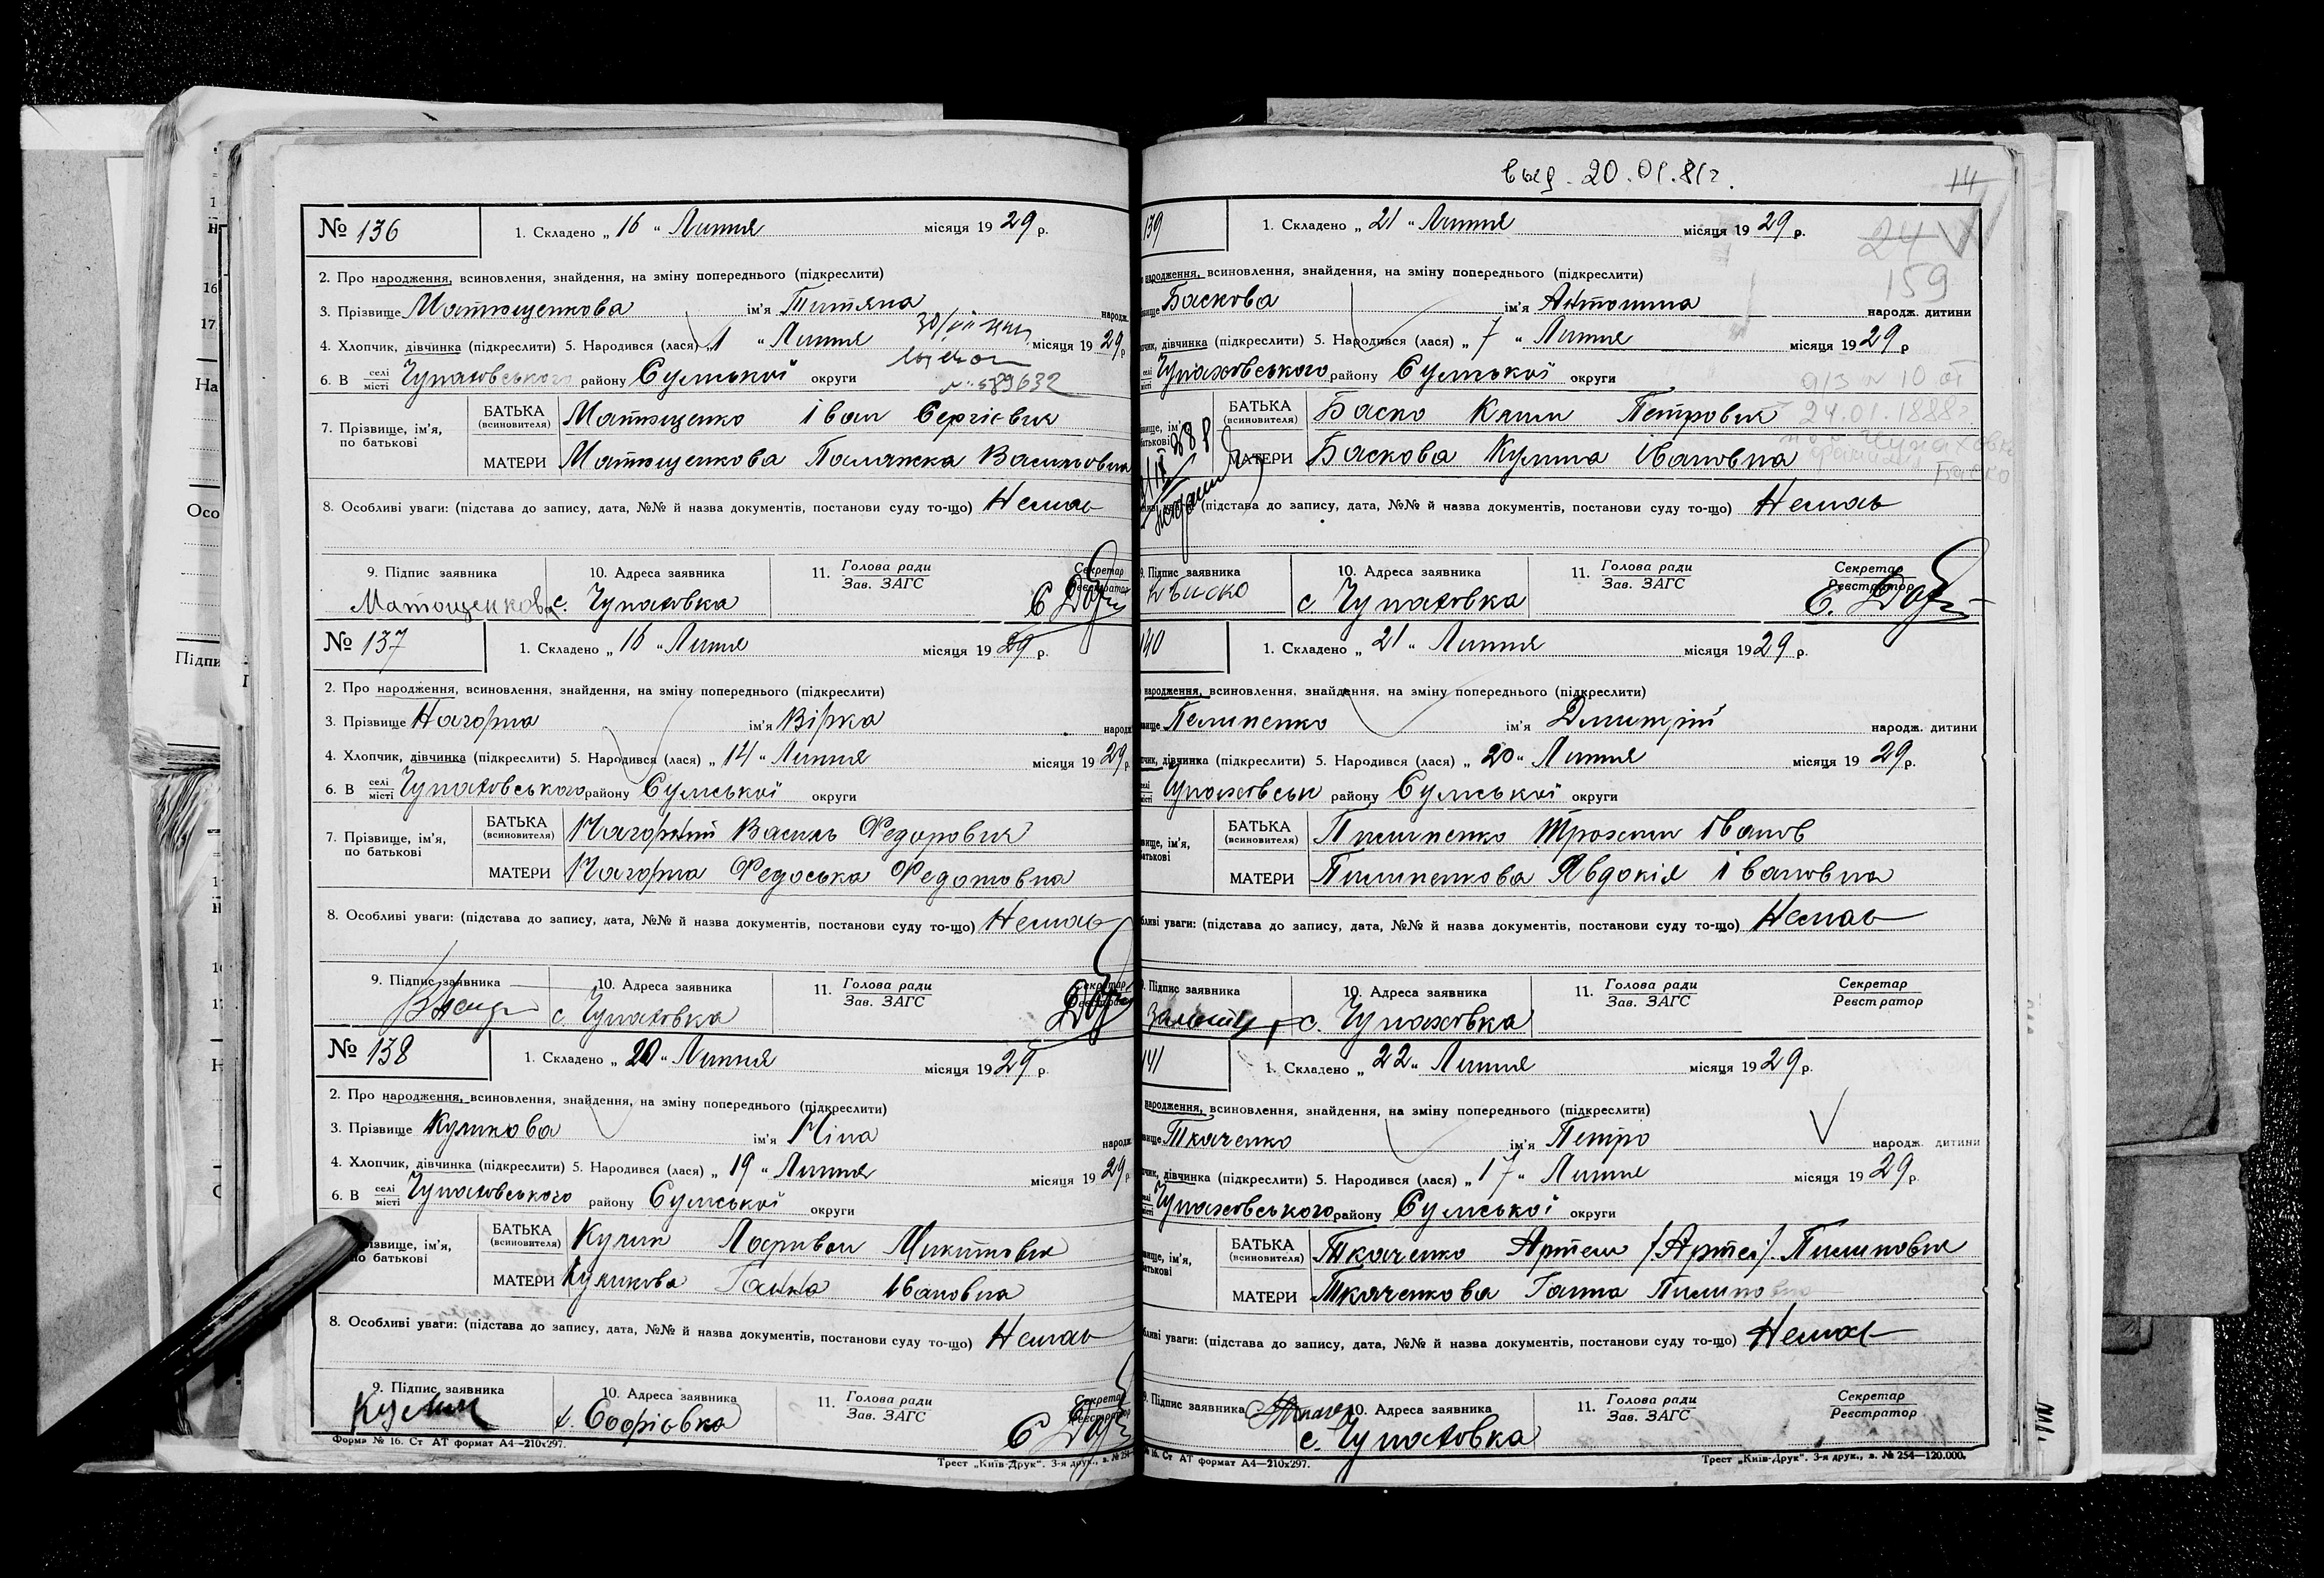 № 136
1. Складено „ 16 “ Липня місяця 19 29 р.
2. Про народження, всиновлення, знайдення, на зміну попереднього (підкреслити)
3. Прізвище Матющенкова ім'я Титяна народж.
4. Хлопчик, дівчинка (підкреслити) 5. Народився (лася) „ 1 “ Липня місяця 19 29 р
6. В селі місті Чупаховського району Сумської округи
№ 589632
7. Прізвище, ім'я, по батькові
БАТЬКА (всиновителя) Матющенко Іван Сергієвич
МАТЕРИ Матющенкова Палажка Василовна
8. Особливі уваги: (підстава до запису, дата, №№ й назва документів, постанови суду то-що) Немає
9. Підпис заявника 10. Адреса заявника 11. Голова ради Зав. ЗАГС Секретар Реєстратор
Матющенкова с. Чупаховка
№ 137
1. Складено „ 16 “ Липня місяця 19 29 р.
2. Про народження, всиновлення, знайдення, на зміну попереднього (підкреслити)
3. Прізвище Нагорна ім'я Вірка народж
4. Хлопчик, дівчинка (підкреслити) 5. Народився (лася) „ 14 “ Липня місяця 19 29 р.
6. В селі місті Чупаховського району Сумської округи
7. Прізвище, ім'я, по батькові
БАТЬКА (всиновителя) Нагорний Василь Федорович
МАТЕРИ Нагорна Федоська Федотовна
8. Особливі уваги: (підстава до запису, дата, №№ й назва документів, постанови суду то-що) Немає
9. Підпис заявника 10. Адреса заявника 11. Голова ради Зав. ЗАГС Секретар Реєстратор
с. Чупаховка
№ 138
1. Складено „ 20 “ Липня місяця 19 29 р.
2. Про народження, всиновлення, знайдення, на зміну попереднього (підкреслити)
3. Прізвище Куликова ім'я Ніна народж
4. Хлопчик, дівчинка (підкреслити) 5. Народився (лася) „ 19 “ Липня місяця 19 29 р.
6. В селі місті Чупаховського району Сумської округи
Прізвище, ім'я, по батькові
БАТЬКА (всиновителя) Кулик Ларивон Микитович
МАТЕРИ Куликова Ганна Івановна
8. Особливі уваги: (підстава до запису, дата, №№ й назва документів, постанови суду то-що) Немає
9. Підпис заявника 10. Адреса заявника 11. Голова ради Зав. ЗАГС Секретар Реєстратор
Кулик х. Софієвка
Форма № 16. Ст АТ формат А4—210х297.
Трест „Київ-Друк“. 3-я друк., з. № 254
выд. 20.01.81г.
14
24
159
139
1. Складено „ 21 “ Липня місяця 19 29 р.
народження, всиновлення, знайдення, на зміну попереднього (підкреслити)
Баскова ім'я Антонина народж. дитини
дівчинка (підкреслити) 5. Народився (лася) „ 7 “ Липня місяця 19 29 р
Чупаховського району Сумської округи
24.01.1888г
БАТЬКА (всиновителя) Баско Клим Петрович
МАТЕРИ Баскова Кулина Івановна
Баско
(підстава до запису, дата, №№ й назва документів, постанови суду то-що) Немає
Підпис заявника 10. Адреса заявника 11. Голова ради Зав. ЗАГС Секретар Реєстратор
К Баско с Чупаховка
140
1. Складено „ 21 “ Липня місяця 19 29 р.
народження, всиновлення, знайдення, на зміну попереднього (підкреслити)
Пелипенко ім'я Дмитрій народж. дитини
дівчинка (підкреслити) 5. Народився (лася) „ 20 “ Липня місяця 19 29 р.
Чупаховськ району Сумської округи
БАТЬКА (всиновителя) Пилипенко Трохим Іванов
МАТЕРИ Пилипенкова Явдокія Івановна
уваги: (підстава до запису, дата, №№ й назва документів, постанови суду то-що) Немає
Підпис заявника 10. Адреса заявника 11. Голова ради Зав. ЗАГС Секретар Реєстратор
с. Чупаховка
141
1. Складено „ 22 “ Липня місяця 19 29 р.
народження, всиновлення, знайдення, на зміну попереднього (підкреслити)
Ткаченко ім'я Петро народж. дитини
дівчинка (підкреслити) 5. Народився (лася) „ 17 “ Липня місяця 19 29 р.
Чупаховського району Сумської округи
БАТЬКА (всиновителя) Ткаченко Артем /Артем/ Пилипович
МАТЕРИ Ткаченкова Ганна Пилиповна
уваги: (підстава до запису, дата, №№ й назва документів, постанови суду то-що) Немає
Підпис заявника 10. Адреса заявника 11. Голова ради Зав. ЗАГС Секретар Реєстратор
с. Чупаховка
№ 16. Ст АТ формат А4—210х297.
Трест „Київ-Друк“. 3-я друк., з. № 254—120.000.